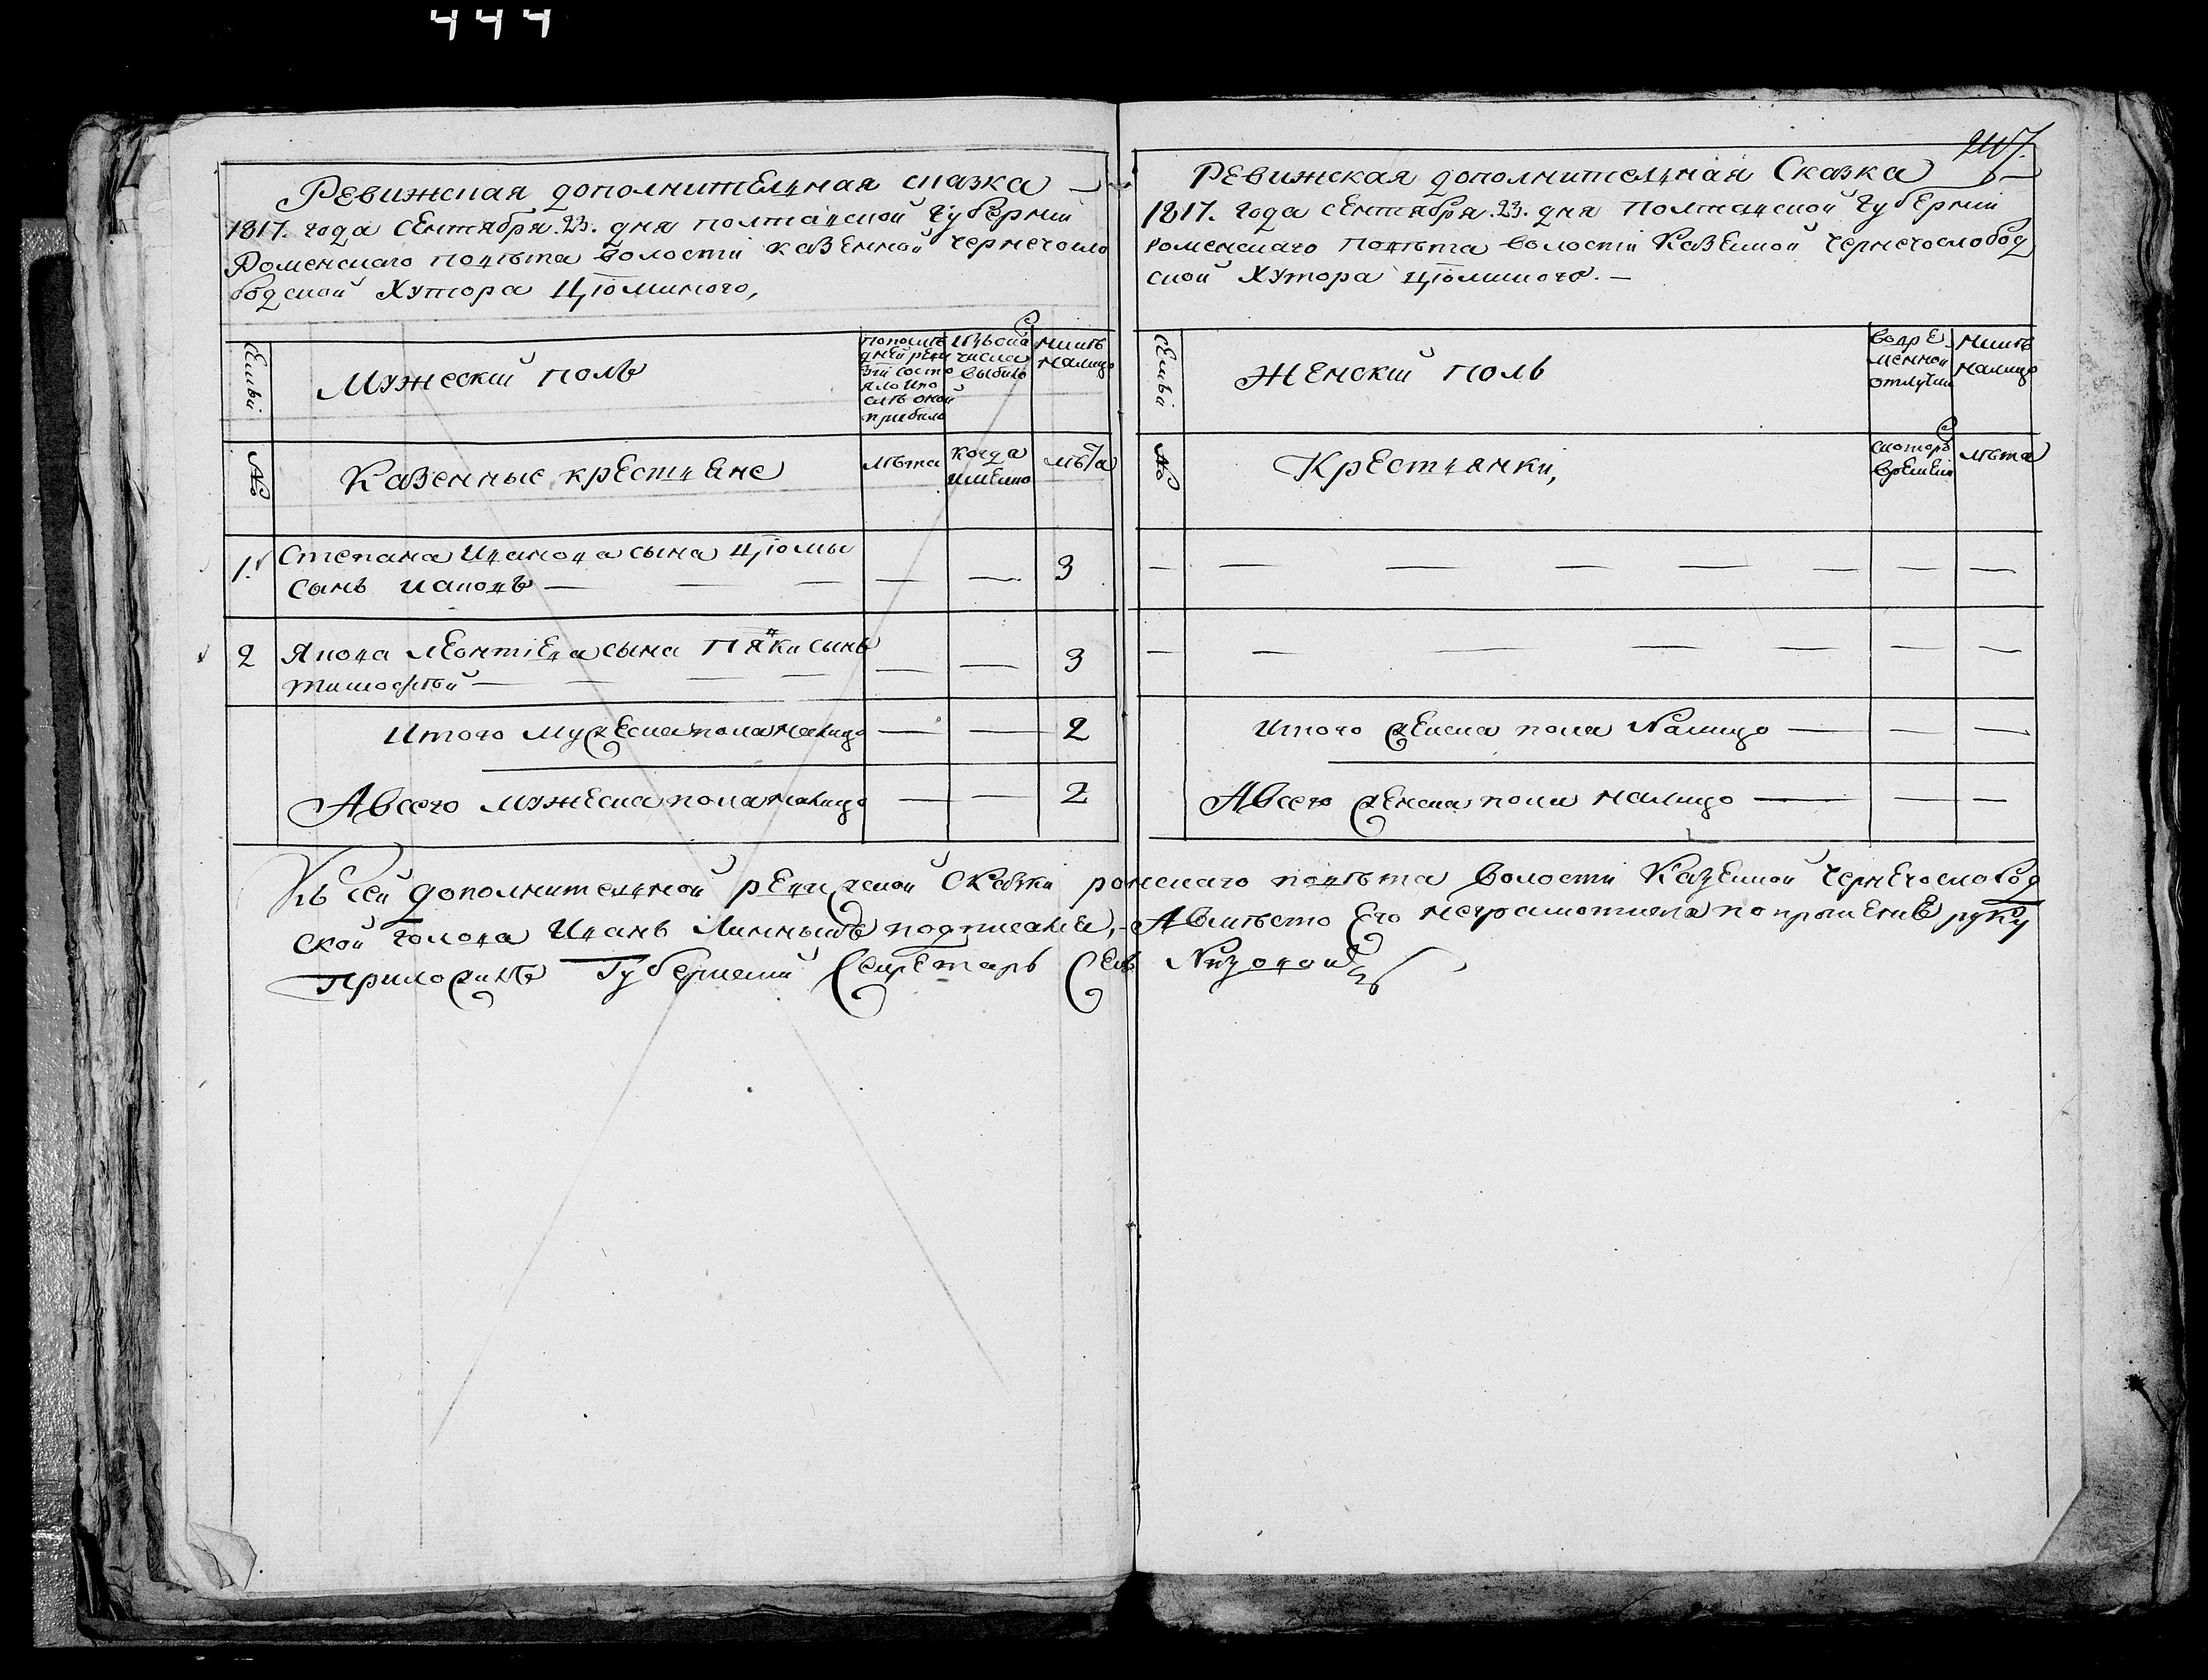 444
Ревижская дополнителная сказка
1817. года сентября .23. дня полтавской губернии
Роменскаго повѣта волости казенной чернечосло
бодской Хутора Цюминого,
Семьи
Мужескій полъ
По послѣ
дней реви
зіи состо
яло и по
слѣ оной
прибило
Изъ сего
числа
выбило
Нинѣ
налицо
№
Казенные крестяне
лѣта
когда
имено
лѣта
1. Степана Иванова сына Цюмы
сынъ Иаковъ — — — — — 3
2 Якова Леонтіева сына Пяки сынъ
Тимофѣй — — — — — 3
Итого мужеска пола налицо — — 2
А всего мужеска пола налицо — — 2
Ревижская дополнителная Сказка
1817. года сентября .23. дня Полтавской Губерніи
роменскаго повѣта волости Казеной чернечослобод
ской Хутора Цюминого. —
Семьи
Женскій полъ
Во вре
менной
отлучки
Нинѣ
налицо
№
Крестянки,
с которого
времени
лѣта
Итого женска пола Налицо — — —
А всего женска пола налицо — — —
Къ сей дополнителной ревижской Сказки роменскаго повѣта волости Казенной Чернечослобод
ской голова Иванъ подписался, А вмѣсто его неграмотнаго по прошению руку
приложилъ Губернский Секретарь